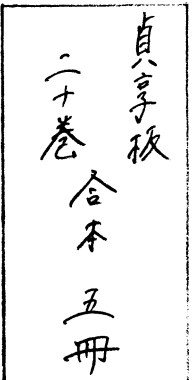 貞享板
二十巻
合本 五冊